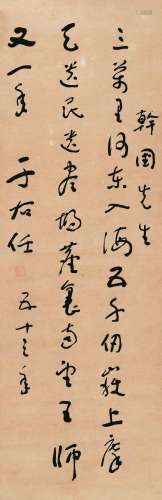 三萬里河東入海五千仞嶽上摩
天遺民淚盡胡塵裏南望王師
又一年
幹國先生
于右任
五十三年